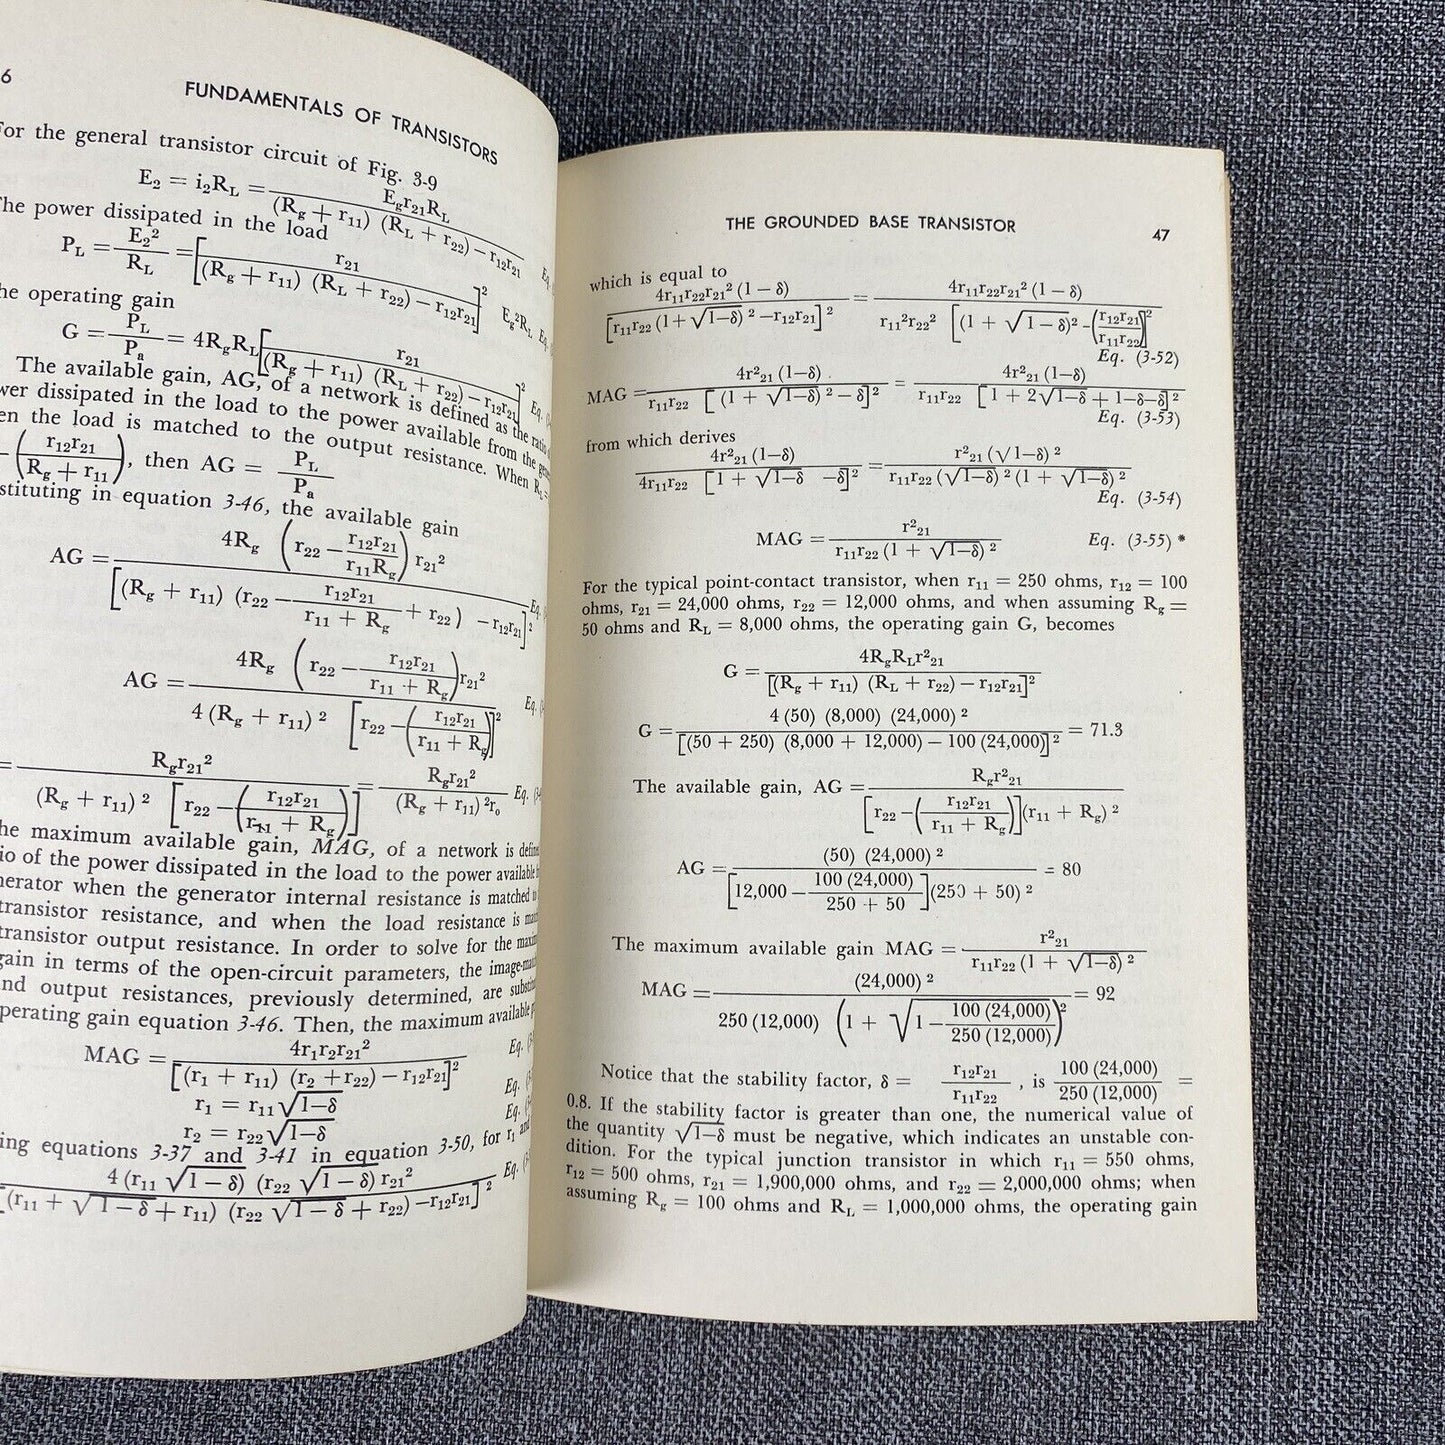 6
FUNDAMENTALS OF TRANSISTORS
For the general transistor circuit of Fig. 3-9
E₂ = i₂R_L = E_g r₂₁ R_L / (R_g + r₁₁) (R_L + r₂₂) – r₁₂r₂₁
The power dissipated in the load
P_L = E₂² / R_L = [r₂₁ / (R_g + r₁₁) (R_L + r₂₂) – r₁₂r₂₁]² E_g²R_L Eq.
the operating gain
G = P_L / P_a = 4R_gR_L [r₂₁ / (R_g + r₁₁) (R_L + r₂₂) – r₁₂r₂₁]² Eq.
The available gain, AG, of a network is defined as the ratio
dissipated in the load to the power available from the
the load is matched to the output resistance. When
– (r₁₂r₂₁ / R_g + r₁₁), then AG = P_L / P_a
stituting in equation 3-46, the available gain
AG = 4R_g (r₂₂ – r₁₂r₂₁ / r₁₁R_g) r₂₁² / [(R_g + r₁₁) (r₂₂ – r₁₂r₂₁ / r₁₁ + R_g + r₂₂) – r₁₂r₂₁]² Eq.
AG = 4R_g (r₂₂ – r₁₂r₂₁ / r₁₁ + R_g) r₂₁² / 4 (R_g + r₁₁)² [r₂₂ – (r₁₂r₂₁ / r₁₁ + R_g)]² Eq.
= R_g r₂₁² / (R_g + r₁₁)² [r₂₂ – (r₁₂r₂₁ / r₁₁ + R_g)] = R_g r₂₁² / (R_g + r₁₁)² r₀ Eq.
he maximum available gain, MAG, of a network is
io of the power dissipated in the load to the power available
nerator when the generator internal resistance is matched
transistor resistance, and when the load resistance is
transistor output resistance. In order to solve for the
gain in terms of the open-circuit parameters, the
nd output resistances, previously determined, are
perating gain equation 3-46. Then, the maximum available
MAG = 4r₁r₂r₂₁² / [(r₁ + r₁₁) (r₂ + r₂₂) – r₁₂r₂₁]² Eq.
r₁ = r₁₁ √1–δ Eq.
r₂ = r₂₂ √1–δ Eq.
ing equations 3-37 and 3-41 in equation 3-50, for r₁ and
4 (r₁₁ √1 – δ) (r₂₂ √1 – δ) r₂₁² / [(r₁₁ + √1 – δ + r₁₁) (r₂₂ √1 – δ + r₂₂) – r₁₂r₂₁]² Eq.
THE GROUNDED BASE TRANSISTOR 47
which is equal to
4r₁₁r₂₂r₂₁² (1 – δ) / [r₁₁r₂₂ (1 + √1–δ)² – r₁₂r₂₁]² = 4r₁₁r₂₂r₂₁² (1 – δ) / r₁₁²r₂₂² [(1 + √1 – δ)² – (r₁₂r₂₁ / r₁₁r₂₂)]²
Eq. (3-52)
MAG = 4r²₂₁ (1–δ) / r₁₁r₂₂ [(1 + √1–δ)² – δ]² = 4r²₂₁ (1–δ) / r₁₁r₂₂ [1 + 2√1–δ + 1–δ–δ]²
Eq. (3-53)
from which derives
4r²₂₁ (1–δ) / 4r₁₁r₂₂ [1 + √1–δ –δ]² = r²₂₁ (√1–δ)² / r₁₁r₂₂ (√1–δ)² (1 + √1–δ)²
Eq. (3-54)
MAG = r²₂₁ / r₁₁r₂₂ (1 + √1–δ)² Eq. (3-55) *
For the typical point-contact transistor, when r₁₁ = 250 ohms, r₁₂ = 100
ohms, r₂₁ = 24,000 ohms, r₂₂ = 12,000 ohms, and when assuming R_g =
50 ohms and R_L = 8,000 ohms, the operating gain G, becomes
G = 4R_gR_Lr²₂₁ / [(R_g + r₁₁) (R_L + r₂₂) – r₁₂r₂₁]²
G = 4 (50) (8,000) (24,000)² / [(50 + 250) (8,000 + 12,000) – 100 (24,000)]² = 71.3
The available gain, AG = R_g r²₂₁ / [r₂₂ – (r₁₂r₂₁ / r₁₁ + R_g)] (r₁₁ + R_g)²
AG = (50) (24,000)² / [12,000 – 100 (24,000) / 250 + 50] (250 + 50)² = 80
The maximum available gain MAG = r²₂₁ / r₁₁r₂₂ (1 + √1–δ)²
MAG = (24,000)² / 250 (12,000) (1 + √1 – 100 (24,000) / 250 (12,000))² = 92
Notice that the stability factor, δ = r₁₂r₂₁ / r₁₁r₂₂ , is 100 (24,000) / 250 (12,000) =
0.8. If the stability factor is greater than one, the numerical value of
the quantity √1–δ must be negative, which indicates an unstable con-
dition. For the typical junction transistor in which r₁₁ = 550 ohms,
r₁₂ = 500 ohms, r₂₁ = 1,900,000 ohms, and r₂₂ = 2,000,000 ohms; when
assuming R_g = 100 ohms and R_L = 1,000,000 ohms, the operating gain